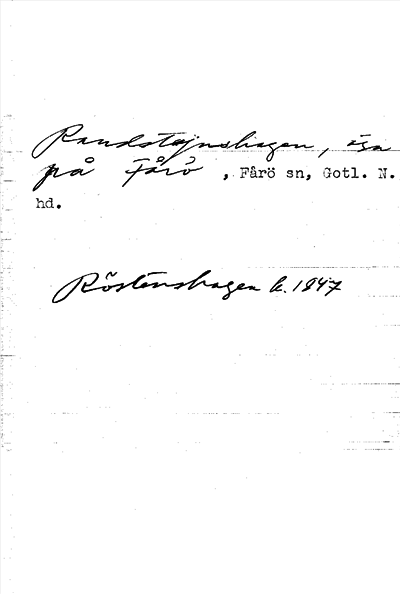 Raudstajnshagen, äga
på Fårö, Fårö sn, Gotl. N.
hd.
Röstenshagen k. 1847